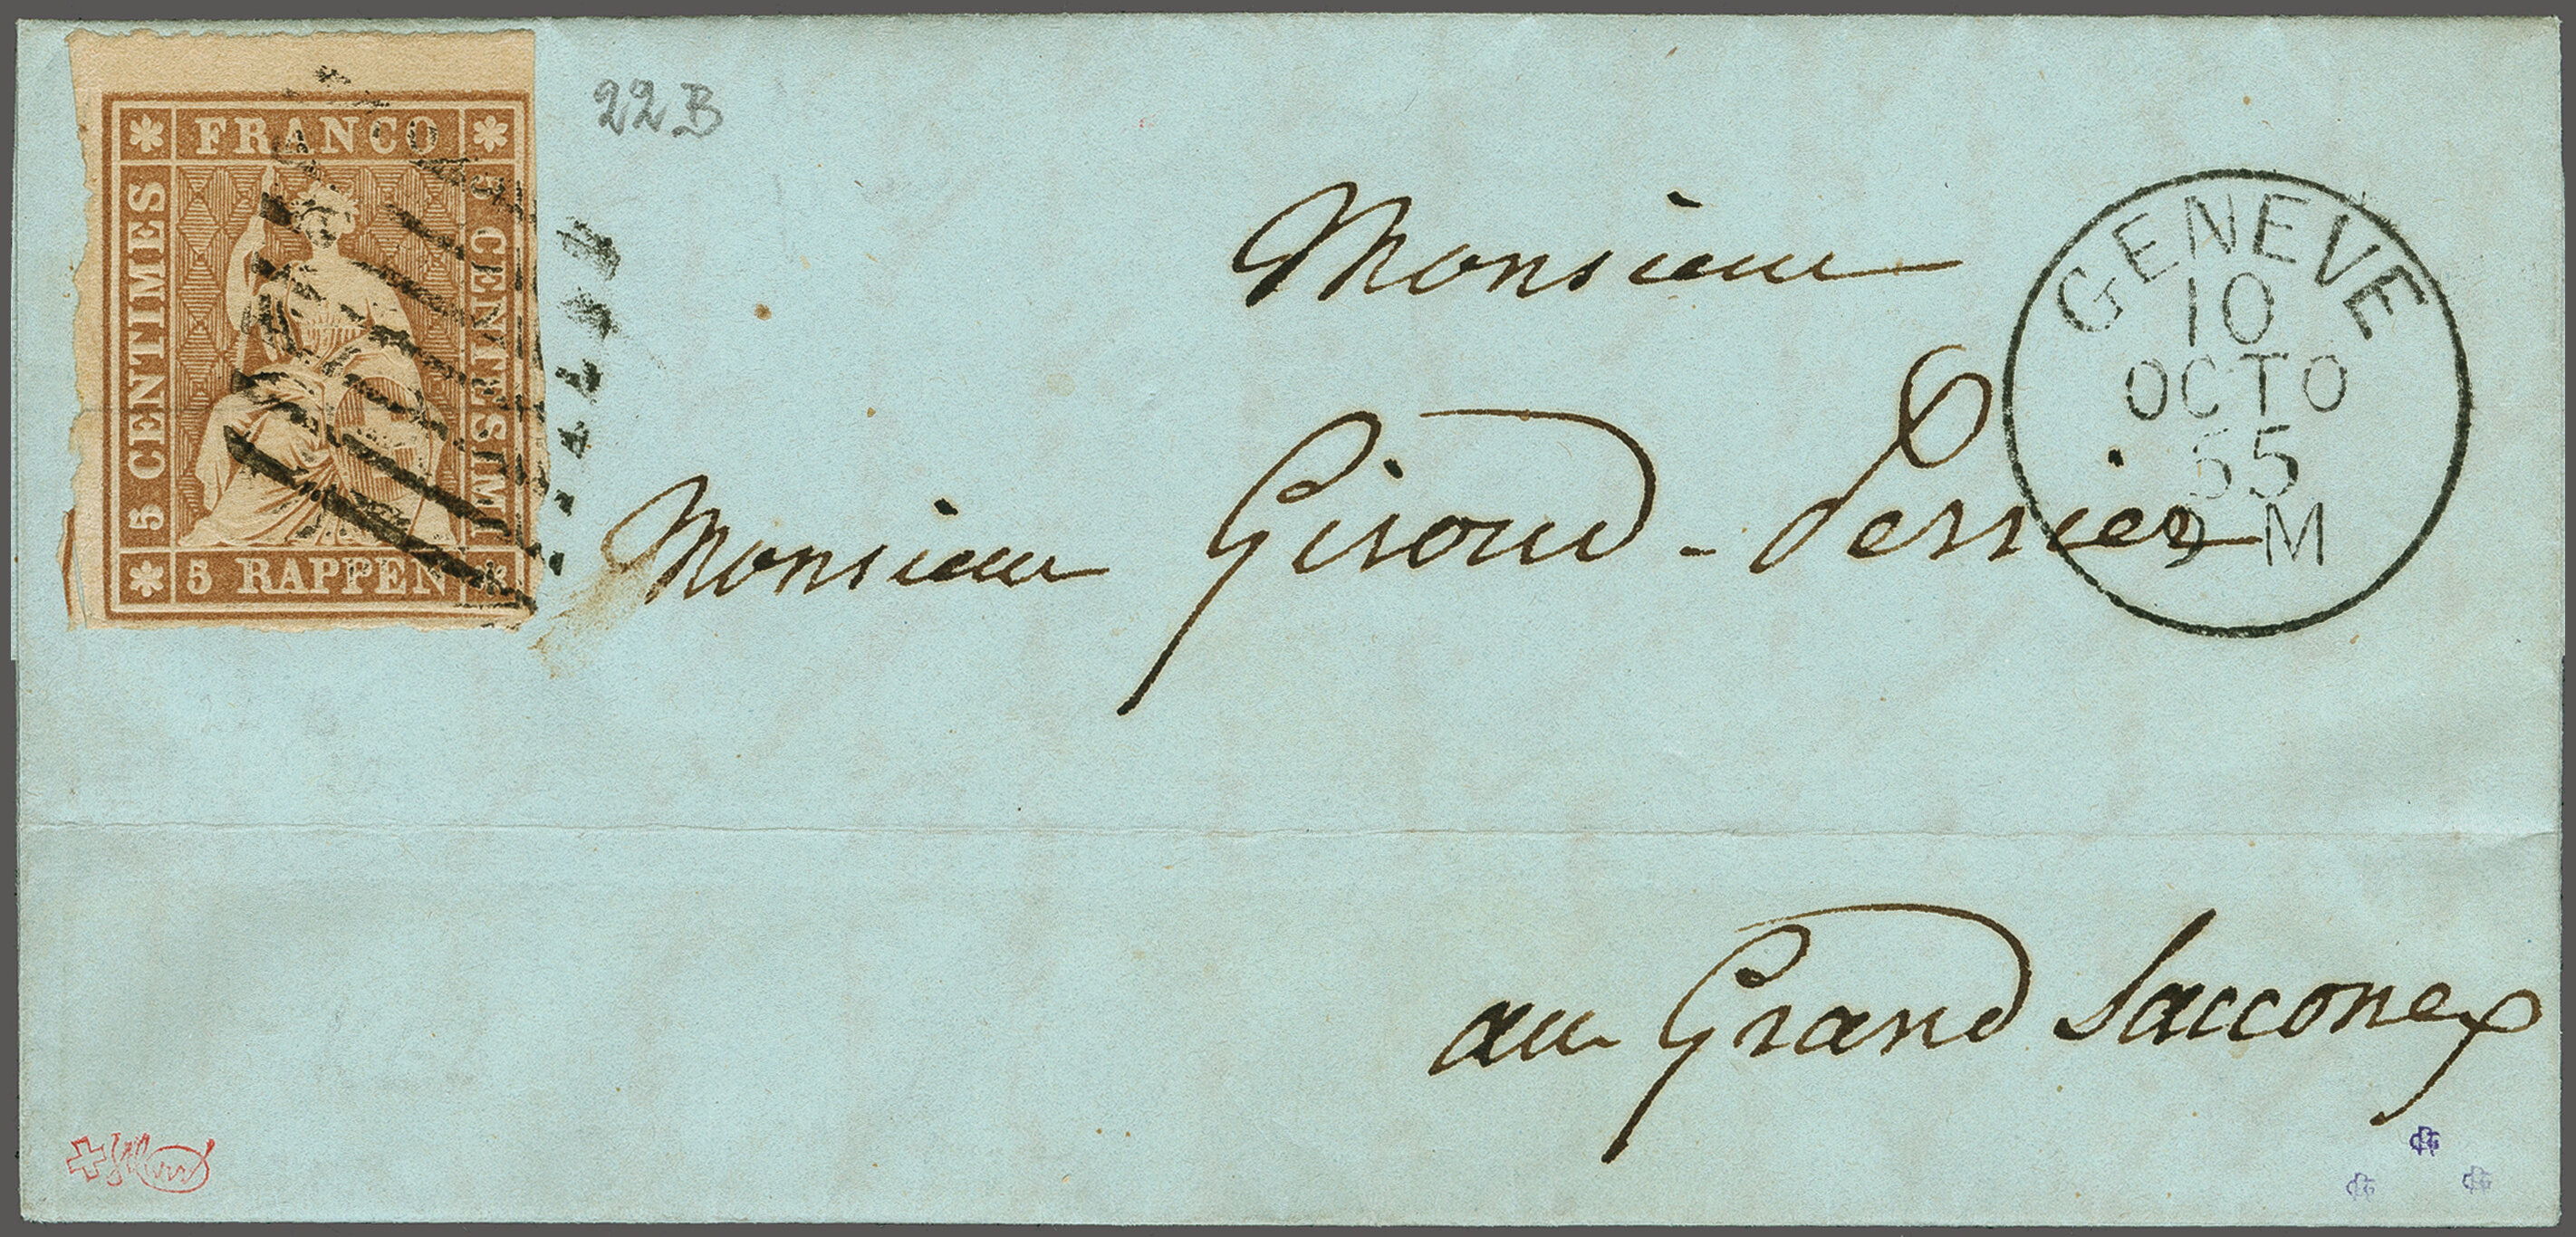 FRANCO
5 CENTIMES
5 CENTESIMI
5 RAPPEN
22B
GENEVE
10
OCTO
55
M
Monsieur
Monsieur Giroud-Perrier
au Grand Sacconex